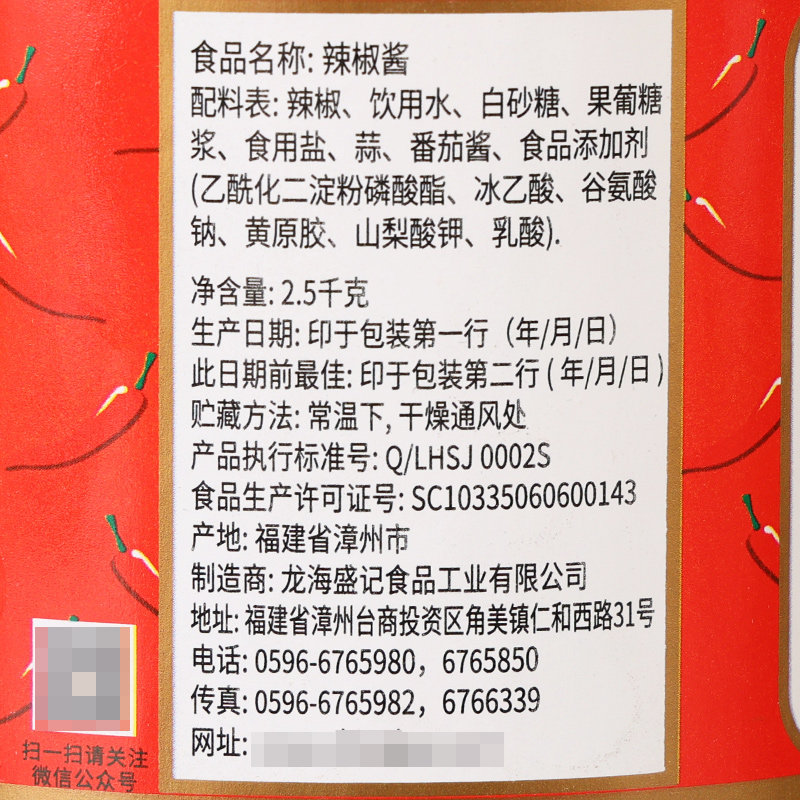 食品名称: 辣椒酱
配料表: 辣椒、饮用水、白砂糖、果葡糖
浆、食用盐、蒜、番茄酱、食品添加剂
(乙酰化二淀粉磷酸酯、冰乙酸、谷氨酸
钠、黄原胶、山梨酸钾、乳酸).
净含量: 2.5千克
生产日期: 印于包装第一行（年/月/日）
此日期前最佳: 印于包装第二行 ( 年/月/日 )
贮藏方法: 常温下, 干燥通风处
产品执行标准号: Q/LHSJ 0002S
食品生产许可证号: SC10335060600143
产地: 福建省漳州市
制造商: 龙海盛记食品工业有限公司
地址: 福建省漳州台商投资区角美镇仁和西路31号
电话: 0596-6765980，6765850
传真: 0596-6765982，6766339
网址:
扫一扫请关注
微信公众号